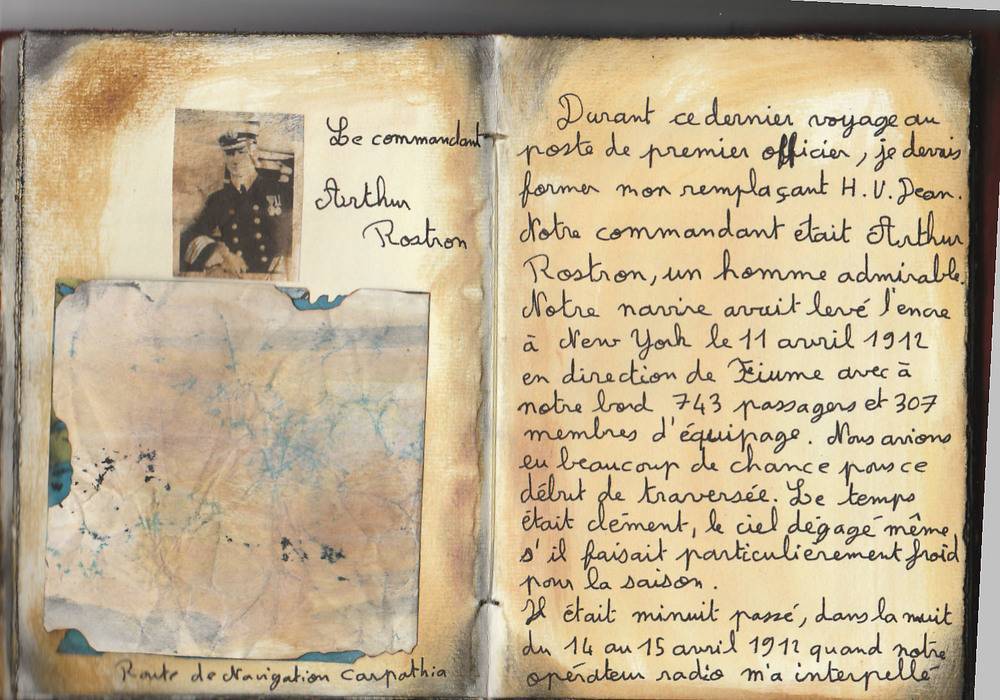 Le commandant
Arthur
Rostron
Route de Navigation Carpathia
Durant ce dernier voyage au
poste de premier officier, je devais
former mon remplaçant H.V. Dean.
Notre commandant était Arthur
Rostron, un homme admirable.
Notre navire avait levé l'encre
à New York le 11 avril 1912
en direction de Fiume avec à
notre bord 743 passagers et 307
membres d'équipage. Nous avions
eu beaucoup de chance pour ce
début de traversée. Le temps
était clément, le ciel dégagé même
s'il faisait particulièrement froid
pour la saison.
Il était minuit passé, dans la nuit
du 14 au 15 avril 1912 quand notre
opérateur radio m'a interpellé